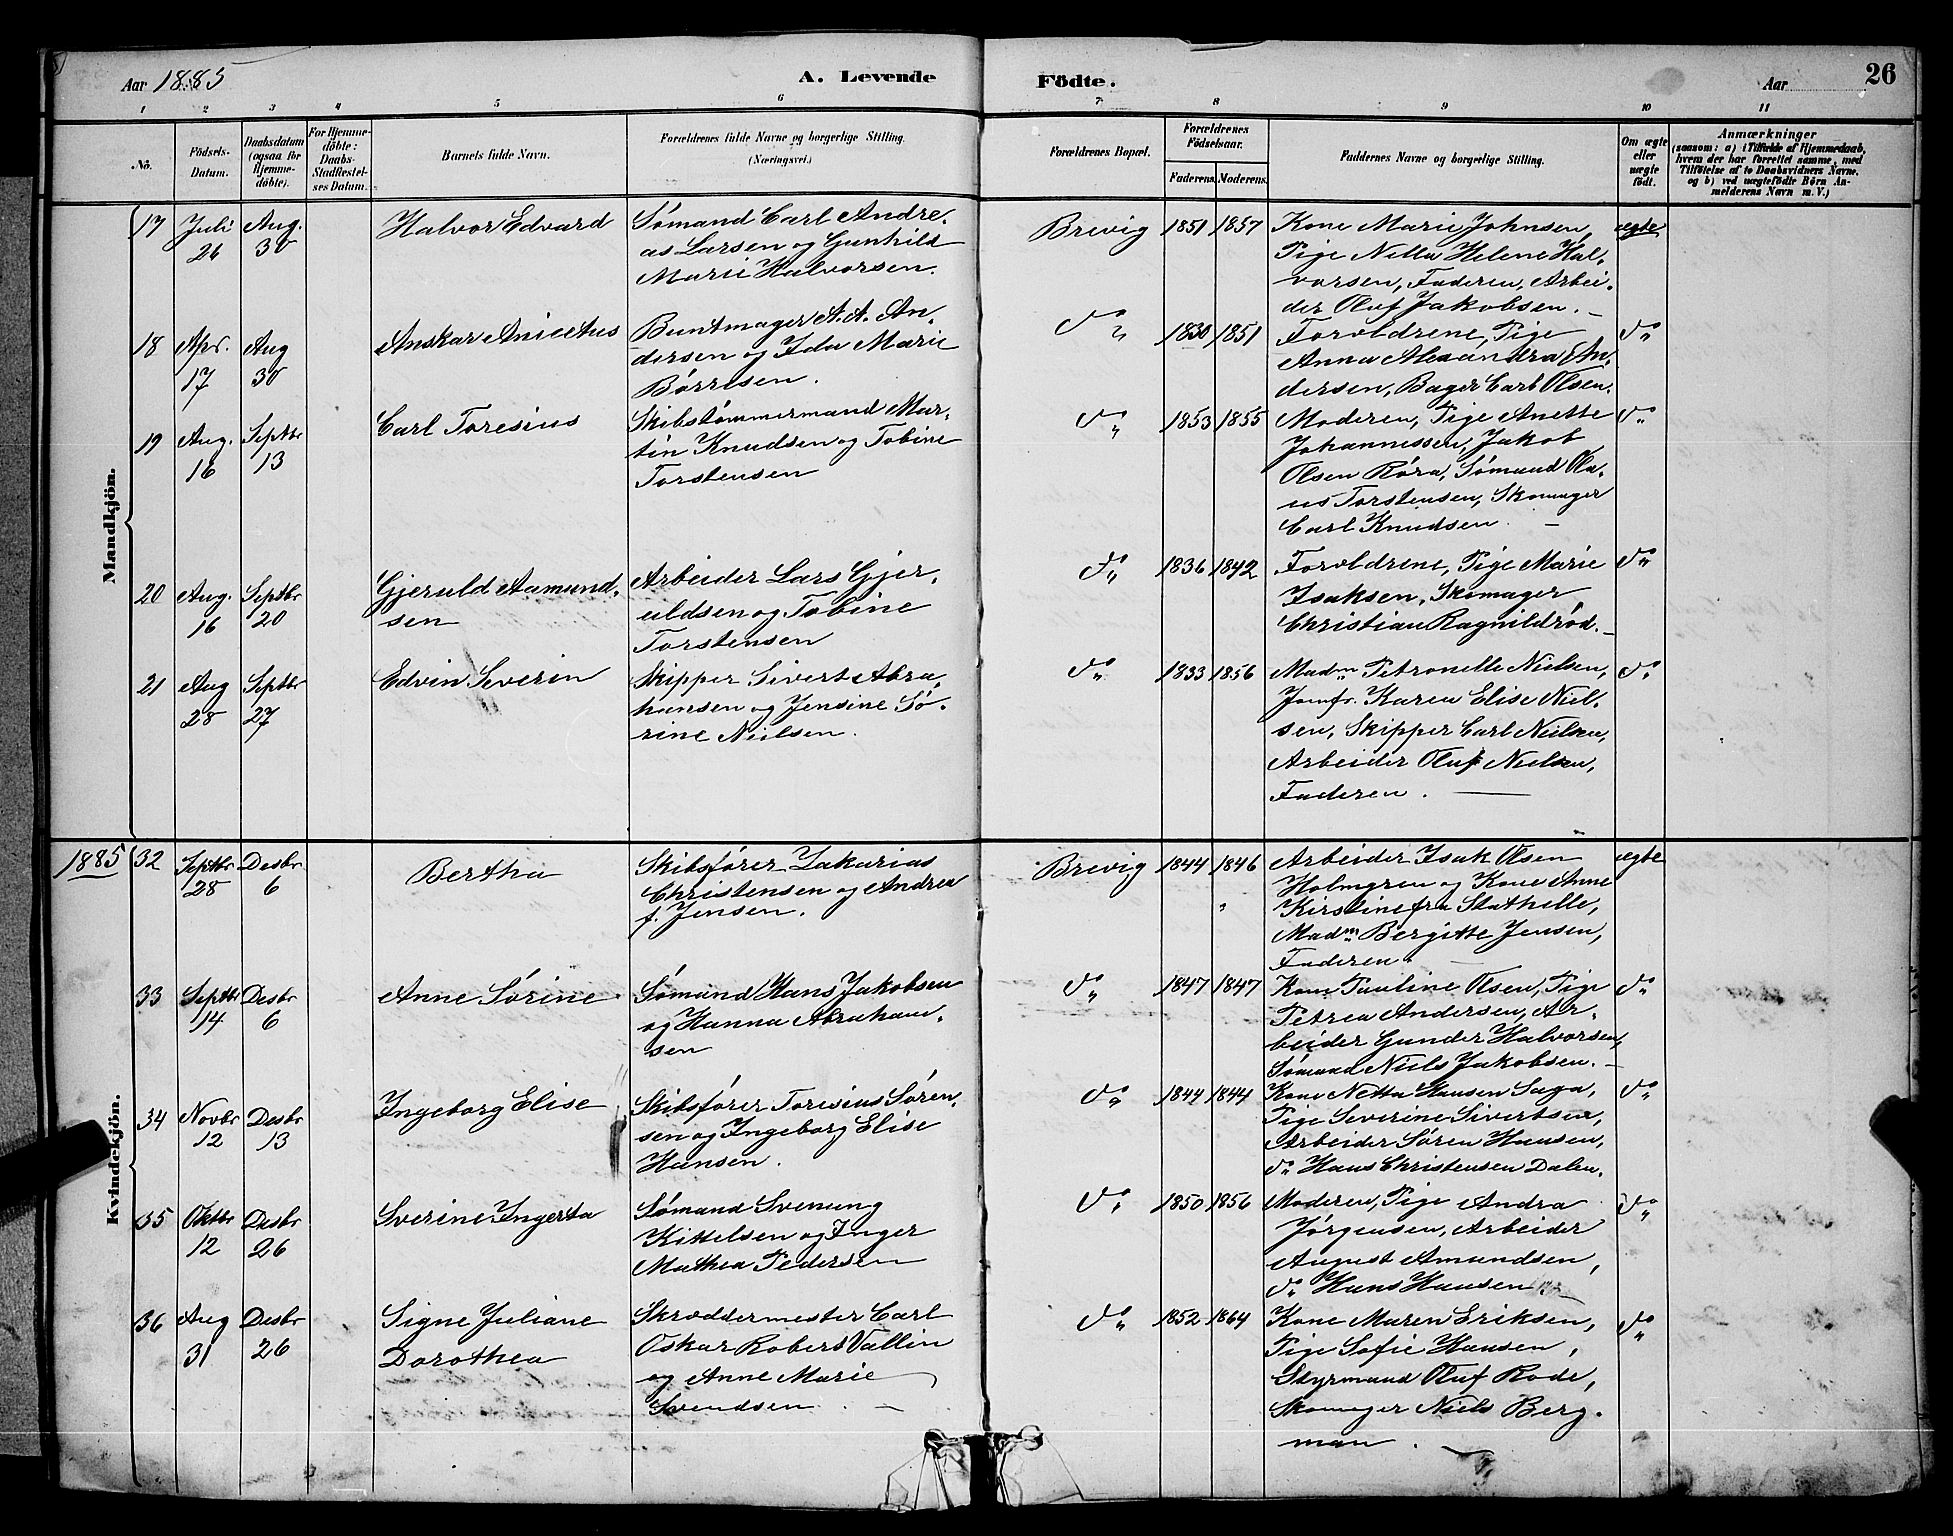 Aar 1885 A. Levende Födte. Aar 26
1 2 3 4 5 6 7 8 9 10 11
No. Födsels-Datum. Daabsdatum (ogsaa for Hjemmedöbte). For Hjemmedöbte: Daabs-Stadfæstelses Datum. Barnets fulde Navn. Forældrenes fulde Navne og borgerlige Stilling. (Næringsvei.) Forældrenes Bopæl. Forældrenes Födselsaar. Faderens. Moderens. Faddernes Navne og borgerlige Stilling. Om ægte eller uægte födt. Anmærkninger (saasom: a) i Tilfælde af Hjemmedaab, hvem der har forrettet samme, med Tilföielse af to Daabsvidners Navne, og b) ved uægtefödte Börn Anmelderens Navn m. V.)
Mandkjön.
17 Juli 26 Aug. 30 Halvor Edvard
Sømand Carl Andre-
as Larsen og Gunhild
Marie Halvorsen.
Brevig 1851 1857
Kone Marie Johnsen,
Pige Nella Helene Hal-
vorsen, Faderen, Arbei-
der Oluf Jakobsen. –
ægte
18 Apr. 17 Aug 30 Anskar Anicetus
Buntmager A. A. An-
dersen og Ida Marie
Børresen.
do 1830 1851
Forældrene, Pige
Anna Alexandra An-
dersen, Bager Carl Olsen.
do
19 Aug. 16 Septbr 13 Carl Toresius
Skibstømmermand Mar-
tin Knudsen og Tobine
Torstensen
do 1853 1855
Moderen, Pige Anette
Johannessen, Jakob
Olsen Røra, Sømand Ola-
us Torstensen, Skomager
Carl Knudsen. –
do
20 Aug. 16 Septbr 20 Gjeruld Aamund-
sen
Arbeider Lars Gjer-
uldsen og Tobine
Torstensen
do 1836 1842
Forældrene, Pige Marie
Isaksen, Skomager
Christian Ragnildrød. –
do
21 Aug 28 Septbr 27 Edvin Severin
Skipper Sivert Abra-
hansen og Jensine Sø-
rine Nielsen.
do 1833 1856
Madm Petronelle Nielsen,
Jomfr. Karen Elise Niel-
sen, Skipper Carl Nielsen,
Arbeider Oluf Nielsen,
Faderen. –
do
Kvindekjön.
1885 32 Septbr 28 Desbr 6 Bertha
Skibsfører Zakarias
Christensen og Andrea
f. Jensen.
Brevig 1844 1846
Arbeider Isak Olsen
Holmgren og Kone Anne
Kirstine fra Stathelle,
Madm Bergitte Jensen,
Faderen.
ægte
33 Septbr 14 Desbr 6 Anne Sørine
Sømand Hans Jakobsen
og Hanna Abraham-
sen
do 1847 1847
Kone Pauline Olsen, Pige
Petrea Andersen, Ar-
beider Gunder Halvorsen,
Sømand Niels Jakobsen. –
do
34 Novbr 12 Desbr 13 Ingeborg Elise
Skibsfører Toresius Søren-
sen og Ingeborg Elise
Hansen.
do 1844 1844
Kone Netta Hansen Saga,
Pige Severine Sivertsen,
Arbeider Søren Hansen,
do Hans Christensen Dalen.
do
35 Oktbr 12 Desbr 26 Sverine Ingerta
Sømand Svenung
Kittelsen og Inger
Mathea Pedersen
do 1850 1856
Moderen, Pige Andra
Jørgensen, Arbeider
August Amundsen,
do Hans Hansen
do
36 Aug 31 Desbr 26 Signe Juliane
Dorothea
Skræddermester Carl
Oskar Robert Vallin
og Anne Marie
Svendsen. –
do 1852 1864
Kone Maren Eriksen,
Pige Sofie Hansen,
Styrmand Oluf Rode,
Skomager Niels Berg-
man.
do